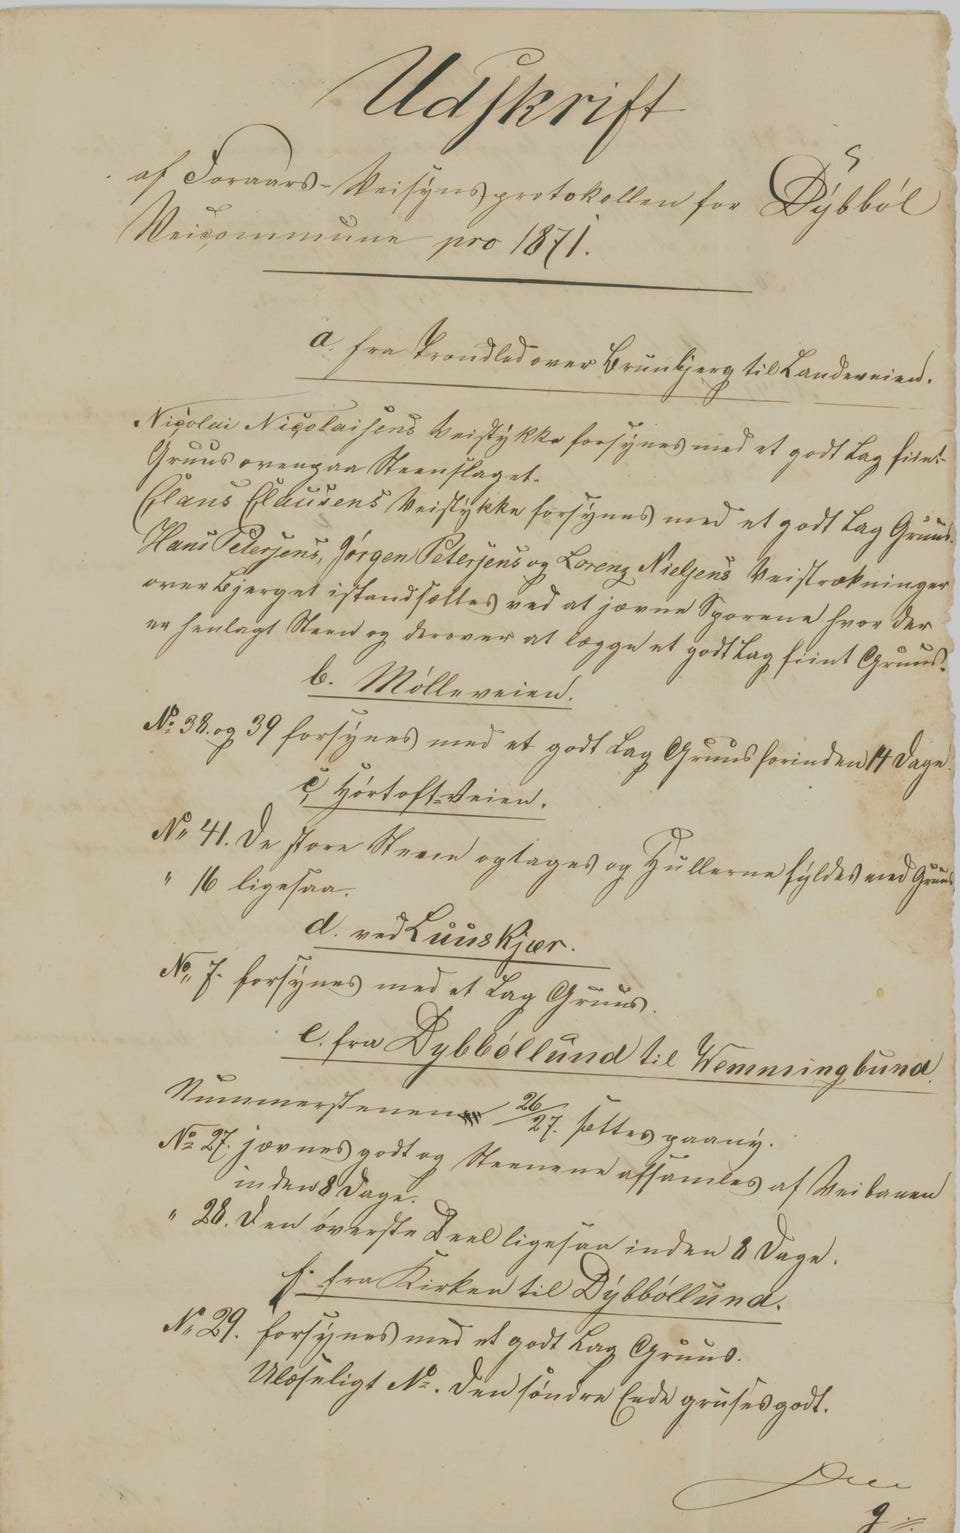 Udskrift
af Foraars-Veisynsprotokollen for Dÿbból
Veicommune pro 1871.
a. fra Prondled over Brunbjerg til Landeveien.
Nicolai Nicolaisens Veistÿkke forsÿnes med et godt Lag fiint
Gruus ovenpaa Steenslaget.
Claus Clausens Veistÿkke forsÿnes med et godt Lag Gruus.
Hans Petersens, Jørgen Petersens og Lorenz Nielsens Veistrækninger
over Bjerget istandsættes ved at jævne Sporene hvor der
er henlagt Steen og derover at lægge et godt Lag fiint Gruus.
b. Mólleveien.
No. 38. og 39 forsÿnes med et godt Lag Gruus forinden 14 Dage.
c, Hórtoft-Veien.
No 41. De store Steene optages og Hullerne fÿldes med Gruus
" 16 ligesaa.
d. ved Luuskjær.
No 7. forsÿnes med et Lag Gruus.
e. fra Dybbóllund til Wemmingbund.
Nummerstenen 26/27. sættes paanÿ.
No 27. jævnes godt og Steenene afsamles af Veibanen
inden 8 Dage.
" 28. Den óverste Deel ligesaa inden 8 Dage.
f. fra Kirken til Dÿbbóllund.
No 29. forsÿnes med et godt Lag Gruus.
Ulæseligt No. Den sóndre Ende gruses godt.
g